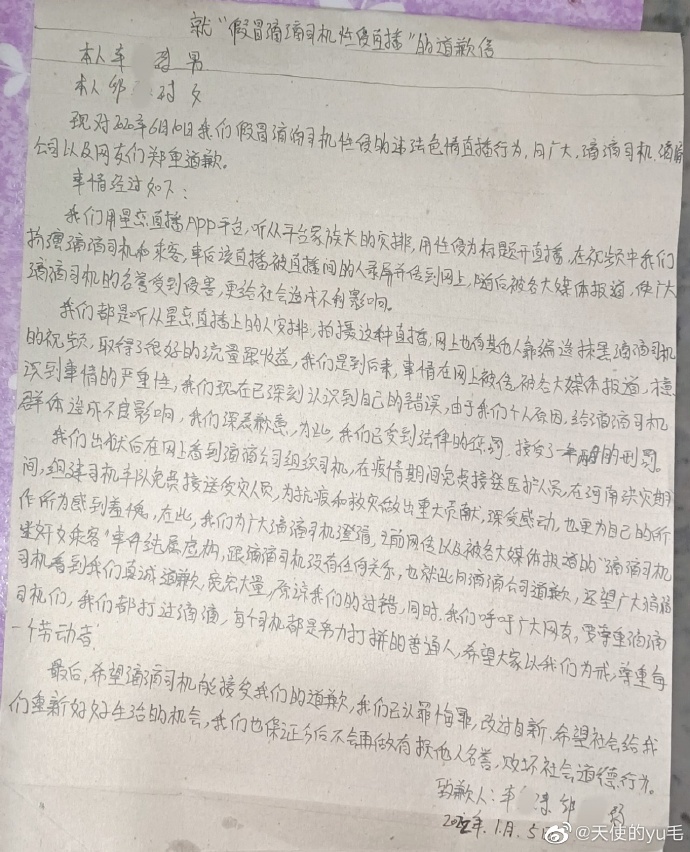 就“假冒滴滴司机性侵直播”的道歉信
本人车 男
本人邹 女
现对2020年6月10日我们假冒滴滴司机性侵的违法色情直播行为,向广大,滴滴司机,滴滴
公司以及网友们郑重道歉。
事情经过如下:
我们用星恋直播APP平台,听从平台家族长的安排,用性侵为标题开直播,在视频中我们
扮演滴滴司机和乘客,事后该直播被直播间的人录屏并传到网上,随后被各大媒体报道,使广大
滴滴司机的名誉受到侵害,更给社会造成不利影响。
我们都是听从星恋直播上的人安排,拍摄这种直播,网上也有其他人靠编造抹黑滴滴司机
的视频,取得了很好的流量跟收益,我们是到后来,事情在网上被传,被各大媒体报道,才意
识到事情的严重性,我们现在已深刻认识到自己的错误,由于我们个人原因,给滴滴司机
群体造成不良影响,我们深表歉意,为此,我们已受到法律的惩罚,接受了一年 的刑罚。
我们出狱后在网上看到滴滴公司组织司机,在疫情期间免费接送医护人员,在河南洪灾期
间,组建司机车队免费接送受灾人员,为抗疫和救灾做出重大贡献,深受感动,也更为自己的所
作所为感到羞愧,在此,我们为广大滴滴司机澄清,之前网传以及被各大媒体报道的“滴滴司机
迷奸女乘客”事件纯属虚构,跟滴滴司机没有任何关系,也就此向滴滴公司道歉,还望广大滴滴
司机看到我们真诚道歉,宽宏大量,原谅我们的过错,同时,我们呼吁广大网友,要尊重滴滴
司机们,我们都打过滴滴,每个司机都是努力打拼的普通人,希望大家以我们为戒,尊重每
一个劳动者.
最后,希望滴滴司机能接受我们的道歉,我们已认罪悔罪,改过自新,希望社会给我
们重新好好生活的机会,我们也保证今后不会再做有损他人名誉,败坏社会道德行为。
致歉人:车 邹
2022年.1月.5
@天使的yu毛